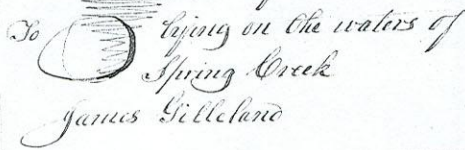 To O lying on the waters of
Spring Creek
James Gilleland